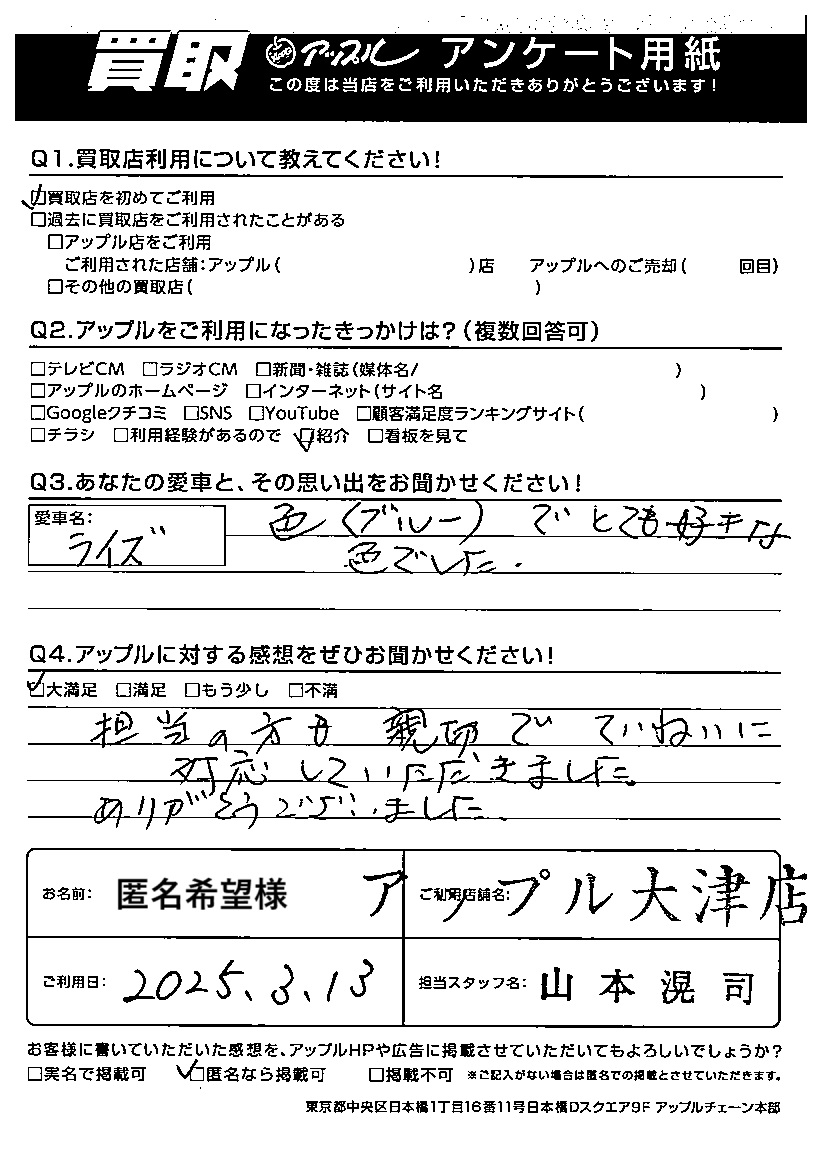 買取 アップル アンケート用紙
この度は当店をご利用いただきありがとうございます!
Q1.買取店利用について教えてください!
☑買取店を初めてご利用
□過去に買取店をご利用されたことがある
□アップル店をご利用
ご利用された店舗:アップル( )店 アップルへのご売却( 回目)
□その他の買取店( )
Q2.アップルをご利用になったきっかけは?(複数回答可)
□テレビCM □ラジオCM □新聞・雑誌(媒体名/ )
□アップルのホームページ □インターネット(サイト名 )
□Googleクチコミ □SNS □YouTube □顧客満足度ランキングサイト( )
□チラシ □利用経験があるので ☑紹介 □看板を見て
Q3.あなたの愛車と、その思い出をお聞かせください!
愛車名: ライズ
色(ブルー)でとても好きな
色でした.
Q4.アップルに対する感想をぜひお聞かせください!
☑大満足 □満足 □もう少し □不満
担当の方も親切でていねいに
対応していただきました。
ありがとうございました。
お名前: 匿名希望様 ご利用店舗名: アップル大津店
ご利用日: 2025.3.13 担当スタッフ名: 山本滉司
お客様に書いていただいた感想を、アップルHPや広告に掲載させていただいてもよろしいでしょうか?
□実名で掲載可 ☑匿名なら掲載可 □掲載不可 ※ご記入がない場合は匿名での掲載とさせていただきます。
東京都中央区日本橋1丁目16番11号日本橋Dスクエア9F アップルチェーン本部